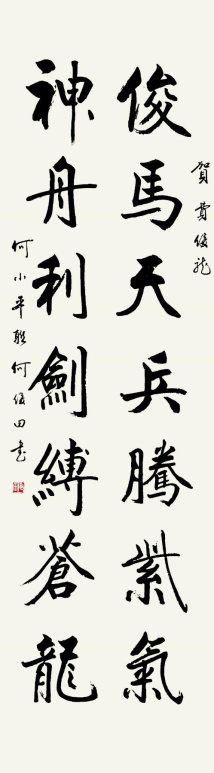 賀費俊龍
俊馬天兵騰紫氣
神舟利劍縛蒼龍
何小平聯何俊田書